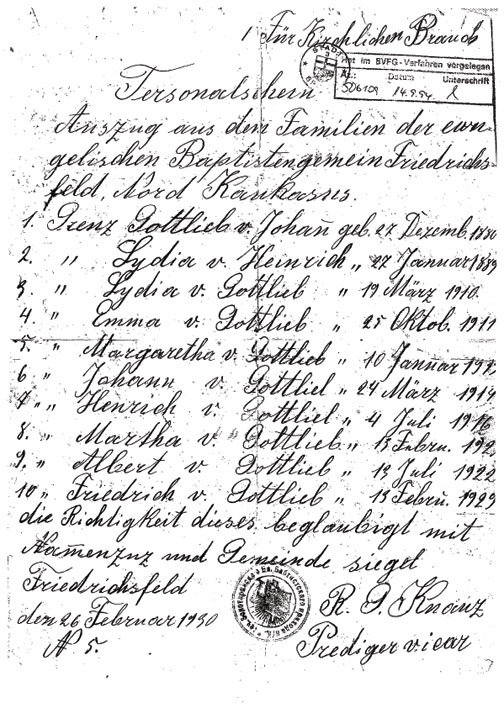 Für Kirchlichen Brauch
Amt im BVFG-Verfahren vorgelegen
Az.: Datum Unterschrift
14.9.54
Personalschein
Auszug aus den Familien der evan-
gelischen Baptistengemein Friedrichs-
feld, Nord Kaukasus.
1. Prenz Gottlieb v. Johañ geb. 27 Dezemb.
2. " Lydia v. Heinrich " 27 Januar
3. " Lydia v. Gottlieb " 19 März 1910.
4. " Emma v. Gottlieb " 25 Oktob. 1911
5. " Margaretha v. Gottlieb " 10 Januar
6. " Johann v. Gottliel " 24 März 1914
7. " Henrich v. Gottliel " 4 Juli 1916
8. " Martha v. Gottlieb " 13 Febru.
9. " Albert v. Gottlieb " 13 Juli 1922
10 " Friedrich v. Gottlieb " 13 Febru. 1929
die Richtigkeit dieses beglaubigt mit
und Gemeinde siegel
Friedrichsfeld
den 26 Februar 1930
N 5.
Prediger vicar